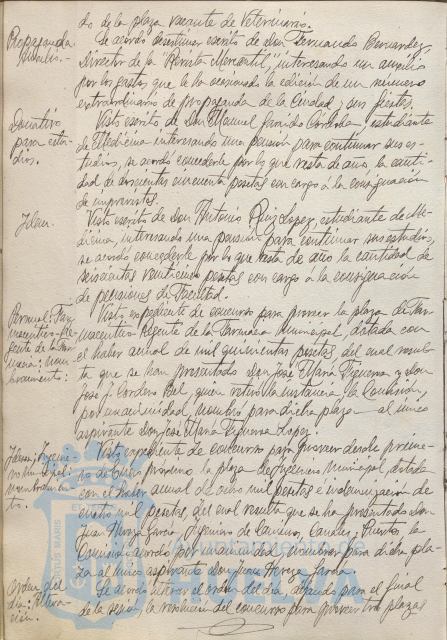 do de la plaza vacante de Veterinario.
Propaganda
Se acordó desestimar escrito de Don Fernando Bernardez,
Director de la "Revista Mercantil" interesando un auxilio
por los gastos que le ha ocasionado la edición de un número
extraordinario de propaganda de la Ciudad y sus fiestas.
Donativo
para estu-
dios.
Visto escrito de Don Manuel Garrido Córdoba, estudiante
de Medicina interesando una pensión para continuar sus es-
tudios, se acordó concederle por lo que resta de año la canti-
dad de doscientas cincuenta pesetas con cargo a la consignación
de imprevistos.
Idem.
Visto escrito de Don Antonio Ruiz Lopez, estudiante de Me-
dicina, interesando una pensión para continuar sus estudios,
se acordó concederle por lo que resta de año la cantidad de
seiscientas veinticinco pesetas con cargo a la consignación
de pensiones de Facultad.
Personal: Far-
maceutico Re-
gente de la Far-
macia: nom-
bramiento:
Visto expediente de concurso para proveer la plaza de Far-
maceutico Regente de la Farmacia Municipal, dotada con
el haber anual de mil quinientas pesetas del cual resul-
ta que se han presentado Don José María Figueroa y Don
José J. Cordero Bel, quien retiró la instancia, la Comisión,
por unanimidad, nombró para dicha plaza al único
aspirante Don José María Figueroa Lopez.
Idem; Ingenie-
ro Municipal:
nombramien-
to.
Visto expediente de concurso para proveer desde primero
de Enero próximo la plaza de Ingeniero Municipal, dotada
con el haber anual de ocho mil pesetas e indemnización de
cuatro mil pesetas del cual resulta que se ha presentado Don
Juan Garcia, Ingeniero de Caminos, Canales y Puertos la
Comisión acordó por unanimidad nombrar para dicha pla-
za al único aspirante Don Juan
Orden del
dia: Altera-
ción.
Se acordó alterar el orden del día, dejando para el final
de la sesión, la resolución del concurso para proveer tres plazas